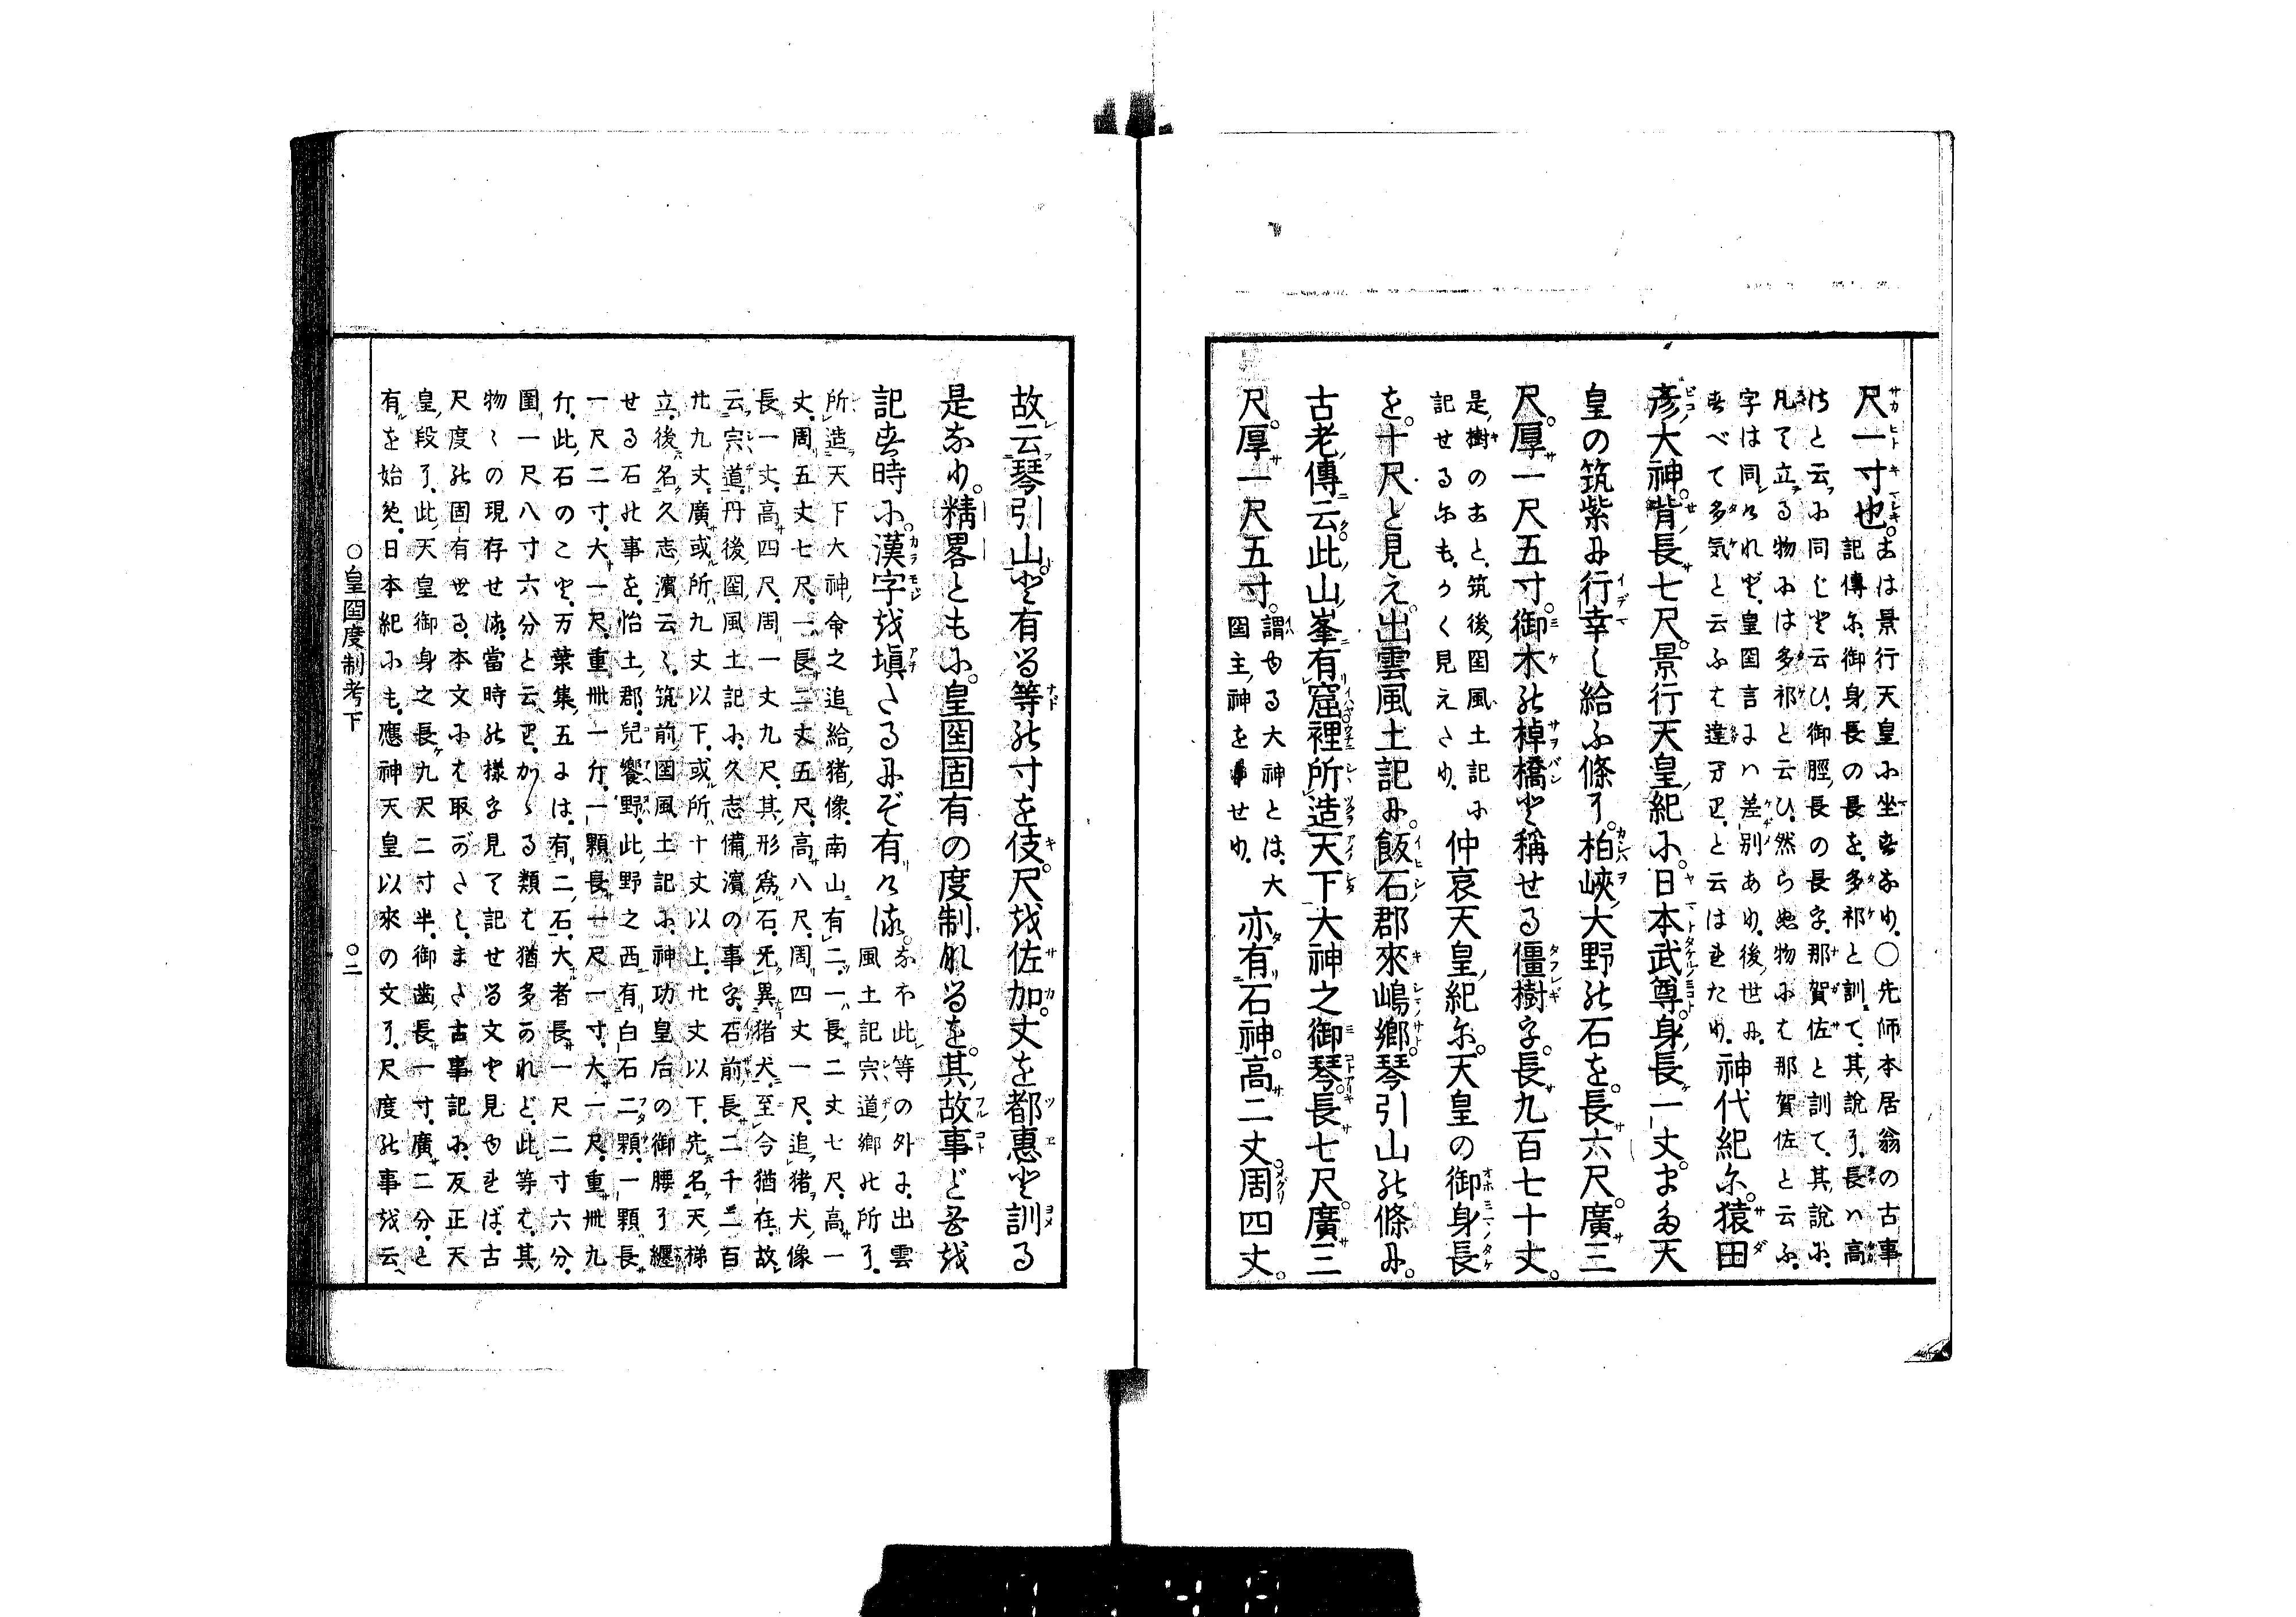 尺一寸也。古は景行天皇に坐すなり。○先師本居翁の古事
記傳に、御身長の長を、多祁と訓て、其説に、長は高
けと云に同じと云ひ、御脛長の長字、那賀佐と訓て、其説に、
凡て立る物には多祁と云ひ、然らぬ物には那賀佐と云ふ、
字は同けれど、皇国言には差別あり、後世に、
すべて多気と云ふは違へり、と云はれたり。神代紀に、猿田
彦大神、背長七尺。景行天皇紀に、日本武尊、身長一丈。また天
皇の筑紫に行幸し給ふ條に、柏峡大野の石を、長六尺。廣三
尺。厚一尺五寸。御木の棹橋と稱せる僵樹を、長九百七十丈。
是樹のこと、筑後国風土記に
記せるにも、かく見えたり。仲哀天皇紀に、天皇の御身長
を、十尺と見え、出雲風土記に、飯石郡來嶋郷、琴引山の條に、
古老傳云、此山峯有窟裡所造天下大神之御琴。長七尺。廣三
尺。厚一尺五寸。謂ゆる大神とは、大
国主神を申せり。亦有石神。高二丈。周四丈。
故云琴引山と有る等の寸を伎。尺を佐加。丈を都惠と訓る
是なり。精畧ともに、皇国固有の度制なるを、其故事ども を
記す時に、漢字を填たるにぞ有ける。なほ此等の外に、出雲
風土記宗道郷の所に、
所造天下大神命之追給猪像、南山有二、一長二丈七尺、高一
丈、周五丈七尺、一長二丈五尺、高八尺、周四丈一尺、追猪犬像
長一丈、高四尺、周一丈九尺、其形為石、无異猪犬、至今猶在、故
云宗道、丹後国風土記に、久志備濱の事を、石前長二千二百
廿九丈、廣或所九丈以下、或所十丈以上、廿丈以下、先名天梯
立、後名久志濱云々、筑前国風土記に、神功皇后の御腰に纒
せる石の事を、怡土郡、兒饗野、此野之西有白石二顆、一顆長
一尺二寸、大一尺、重卅一斤、一顆長一尺一寸、大一尺、重卅九
斤、此石のこと、万葉集五には、有二石、大者長一尺二寸六分、
圍一尺八寸六分と云り、かゝる類は猶多かれど、此等は、其
物々の現存せる、當時の様を見て記せる文と見ゆれば、古
尺度の固有せる、本文には取がたし、また古事記に、反正天
皇段に、此天皇御身之長九尺二寸半、御齒長一寸、廣二分、と
有を始め、日本紀にも、應神天皇以來の文に、尺度の事を云
○皇国度制考下 ○二